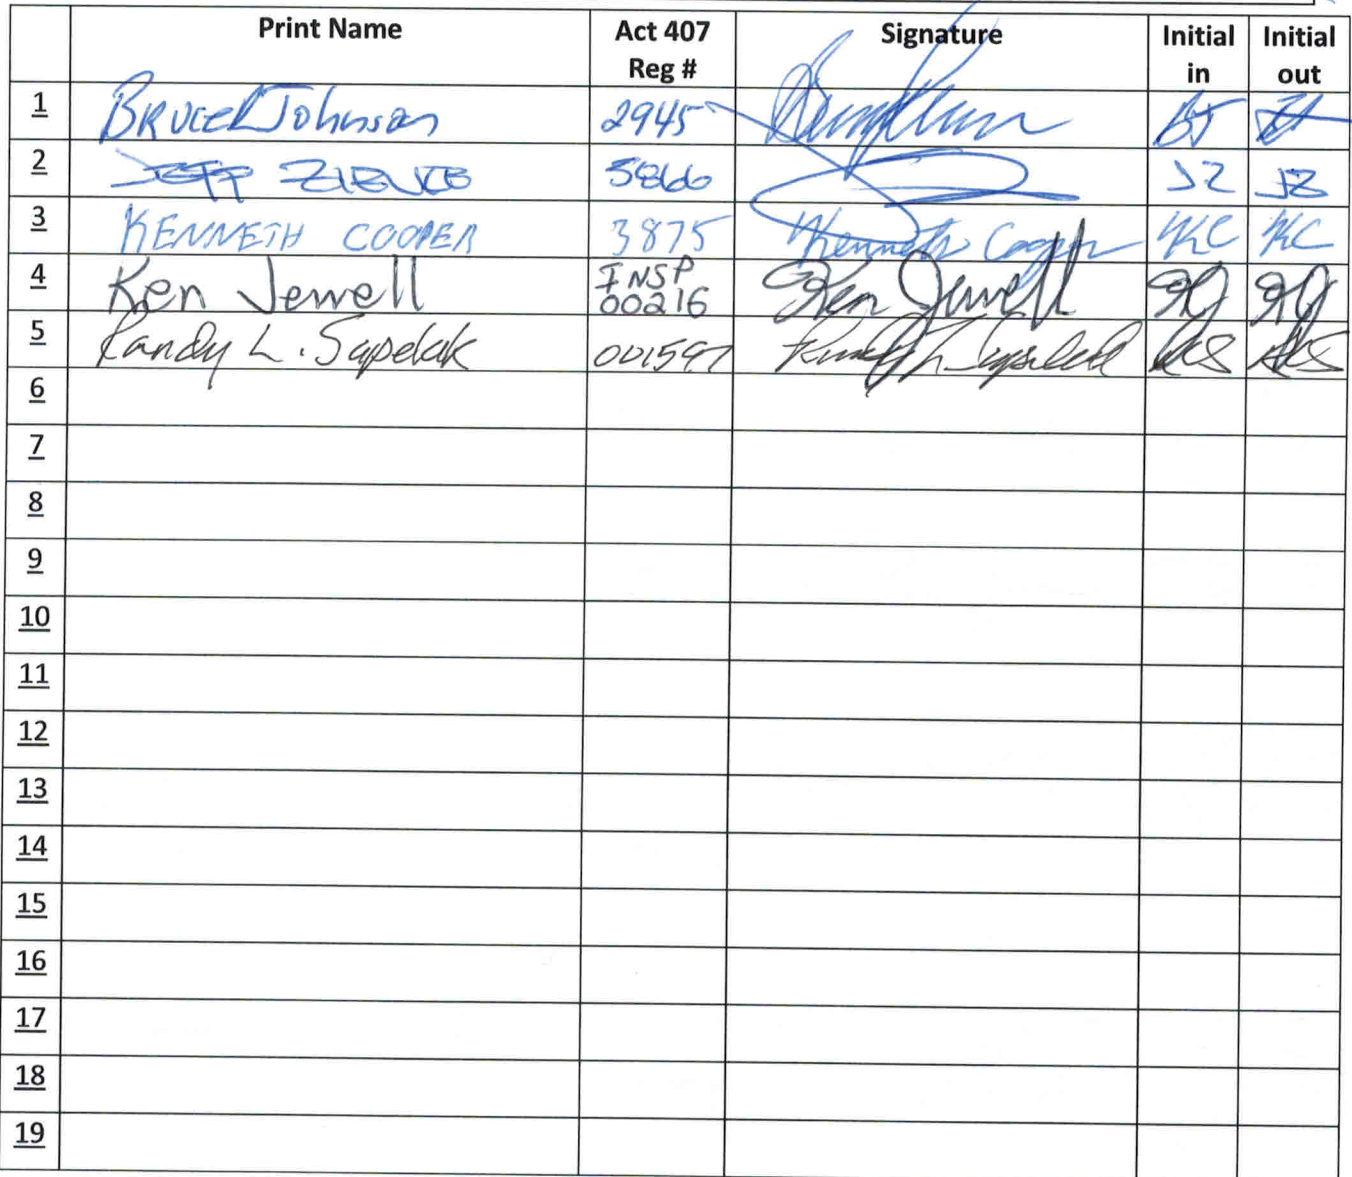 Print Name Act 407 Reg # Signature Initial in Initial out
1 Bruce Johnson 2945 BJ BJ
2 JEFF ZIELKE 5866 JZ JZ
3 KENNETH COOPER 3875 Kenneth Cooper KC KC
4 Ken Jewell INSP 00216 Ken Jewell KJ KJ
5 Randy L. Sapelak 001597 RLS RLS
6
7
8
9
10
11
12
13
14
15
16
17
18
19